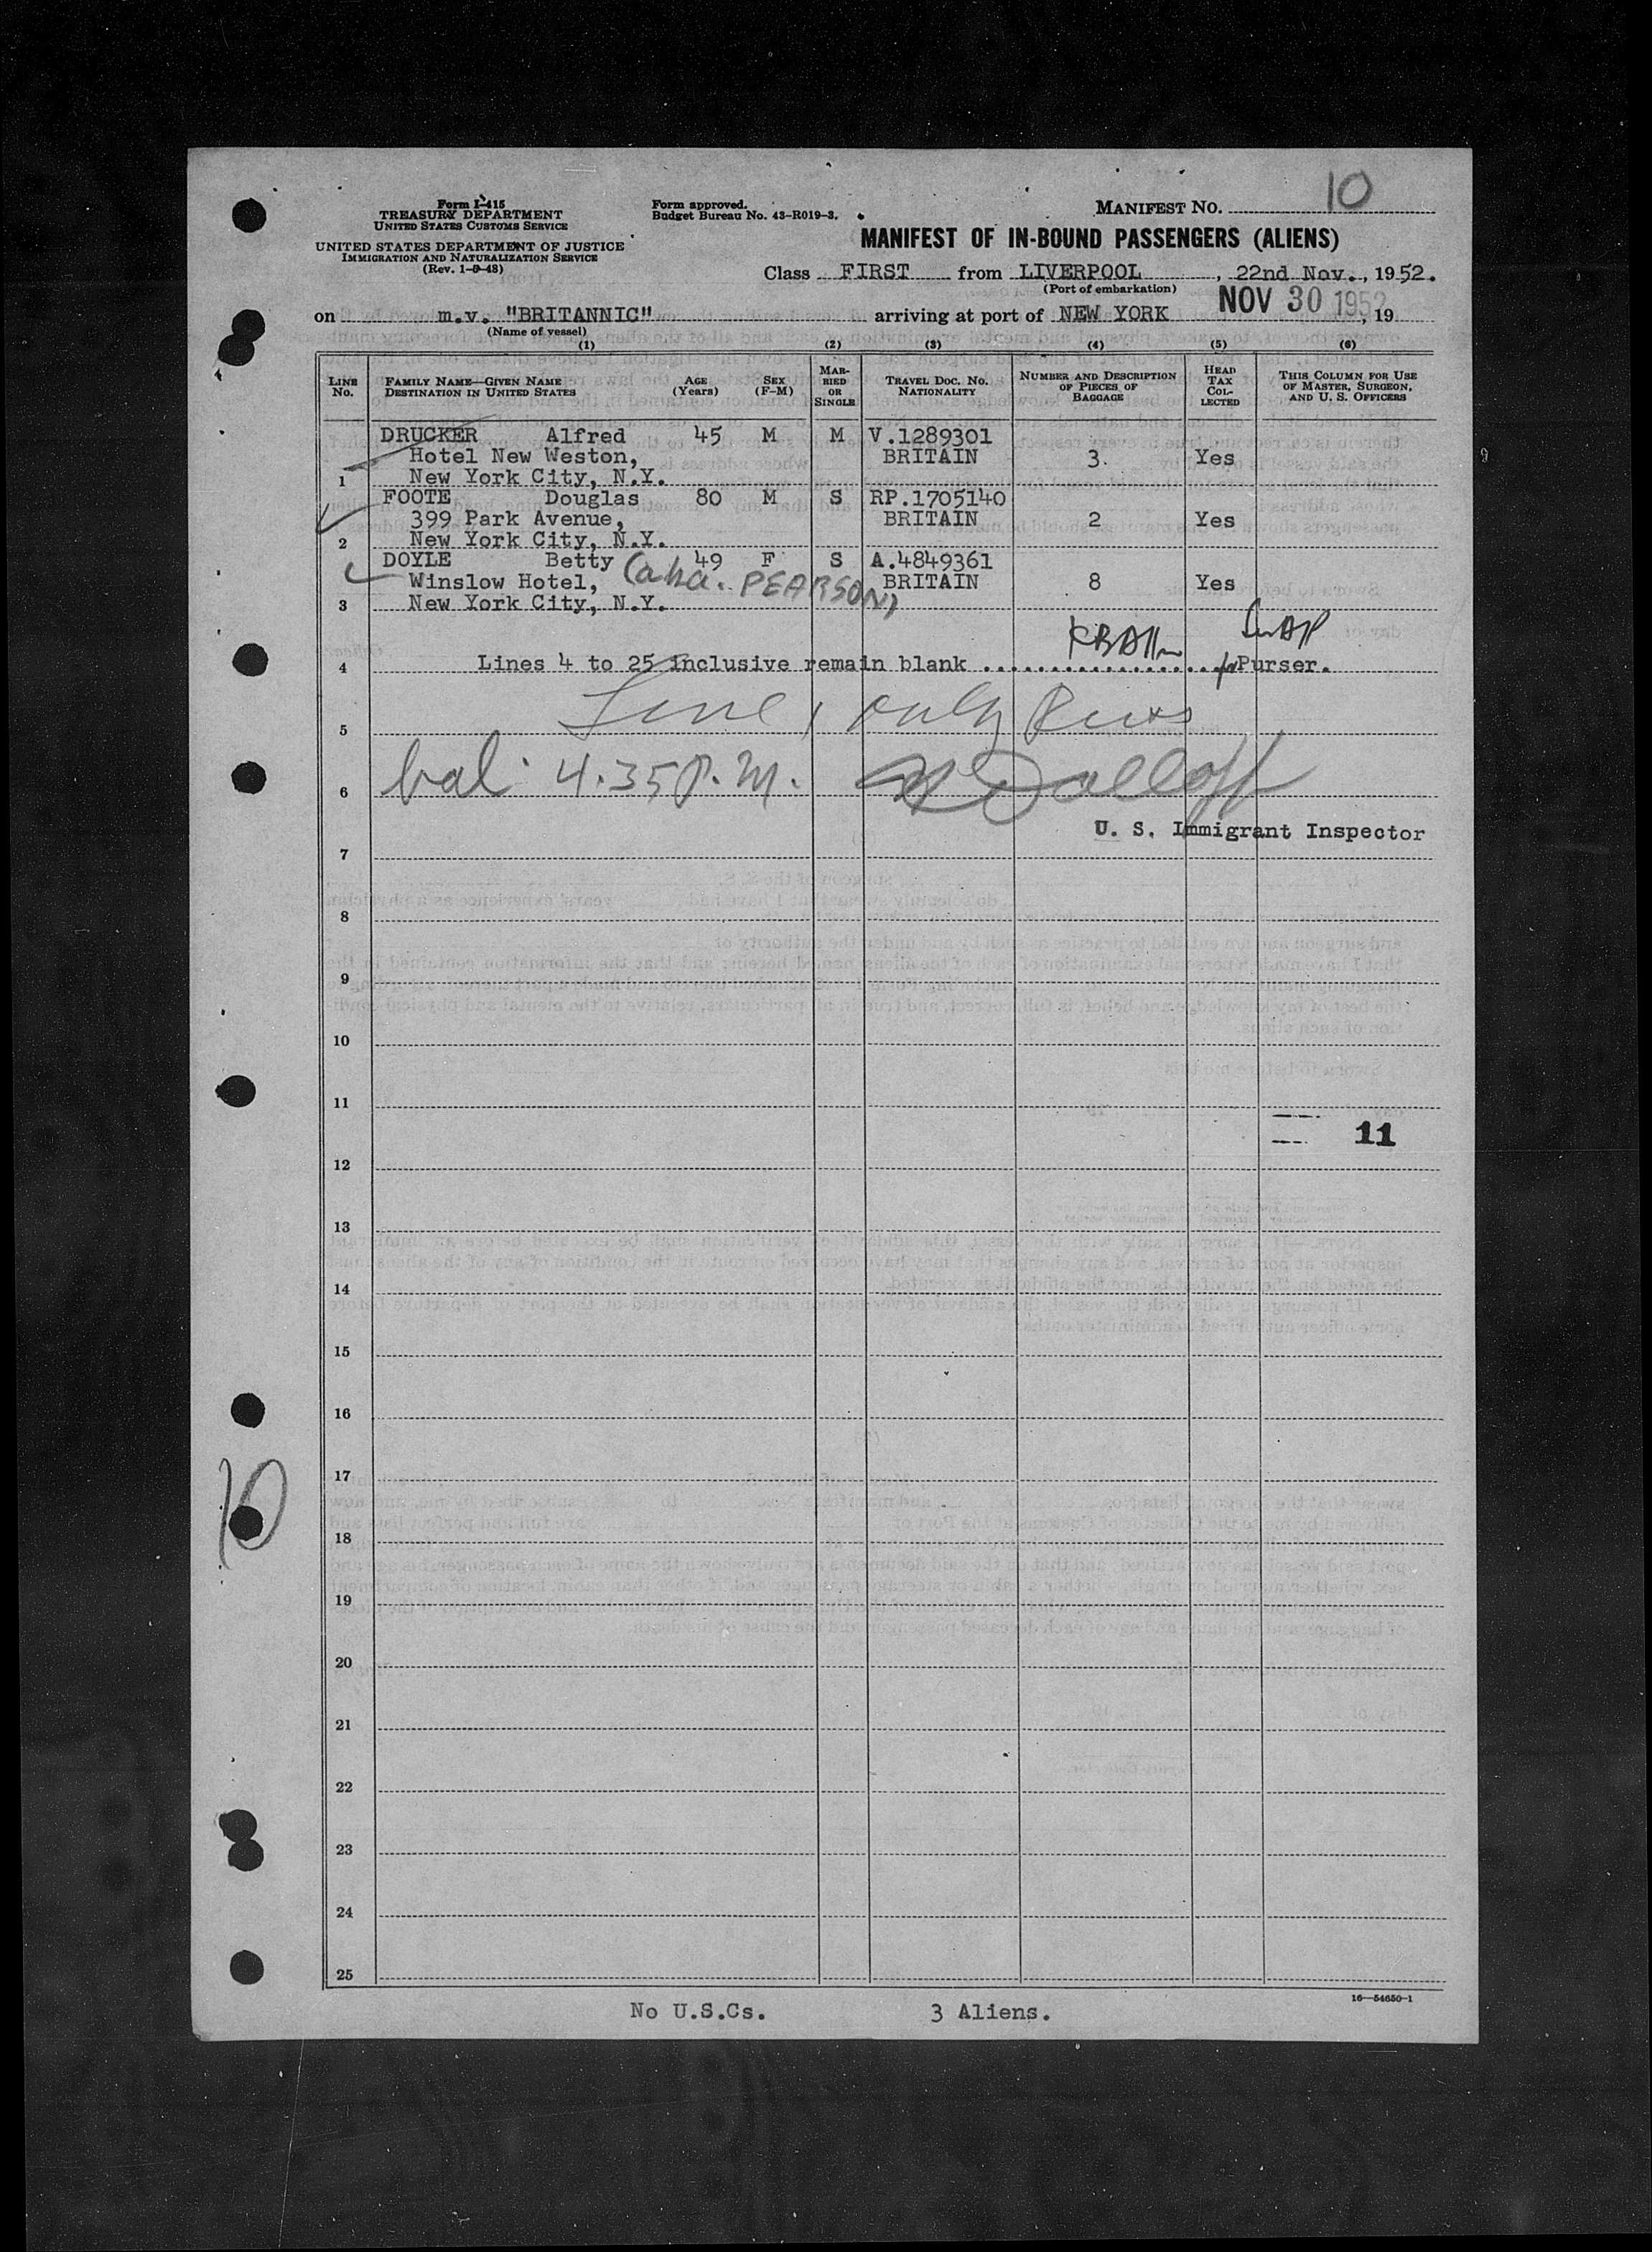 10
Form I-415
TREASURY DEPARTMENT
UNITED STATES CUSTOMS SERVICE
UNITED STATES DEPARTMENT OF JUSTICE
IMMIGRATION AND NATURALIZATION SERVICE
(Rev. 1-9-48)
Form approved.
Budget Bureau No. 43-R019-3.
MANIFEST NO.
MANIFEST OF IN-BOUND PASSENGERS (ALIENS)
Class FIRST from LIVERPOOL, 22nd Nov., 1952.
(Port of embarkation)
on m.v. "BRITANNIC" arriving at port of NEW YORK NOV 30 1952, 19
(Name of vessel)
(1) (2) (3) (4) (5) (6)
LINE No. FAMILY NAME—GIVEN NAME DESTINATION IN UNITED STATES AGE (Years) SEX (F-M) MARRIED OR SINGLE TRAVEL DOC. NO. NATIONALITY NUMBER AND DESCRIPTION OF PIECES OF BAGGAGE HEAD TAX COLLECTED THIS COLUMN FOR USE OF MASTER, SURGEON, AND U. S. OFFICERS
DRUCKER Alfred 45 M M V.1289301
Hotel New Weston, BRITAIN 3. Yes
1 New York City, N.Y.
FOOTE Douglas 80 M S RP.1705140
399 Park Avenue, BRITAIN 2 Yes
2 New York City, N.Y.
DOYLE Betty 49 F S A.4849361
Winslow Hotel, (aka. PEARSON) BRITAIN 8 Yes
3 New York City, N.Y.
4 Lines 4 to 25 inclusive remain blank .................. Purser.
5 Line 1 only
6 bal. 4.35 P.M.
U. S. Immigrant Inspector
7
8
9
10
11
11
12
13
14
15
16
17
10
18
19
20
21
22
23
24
25
16—54650-1
No U.S.Cs. 3 Aliens.